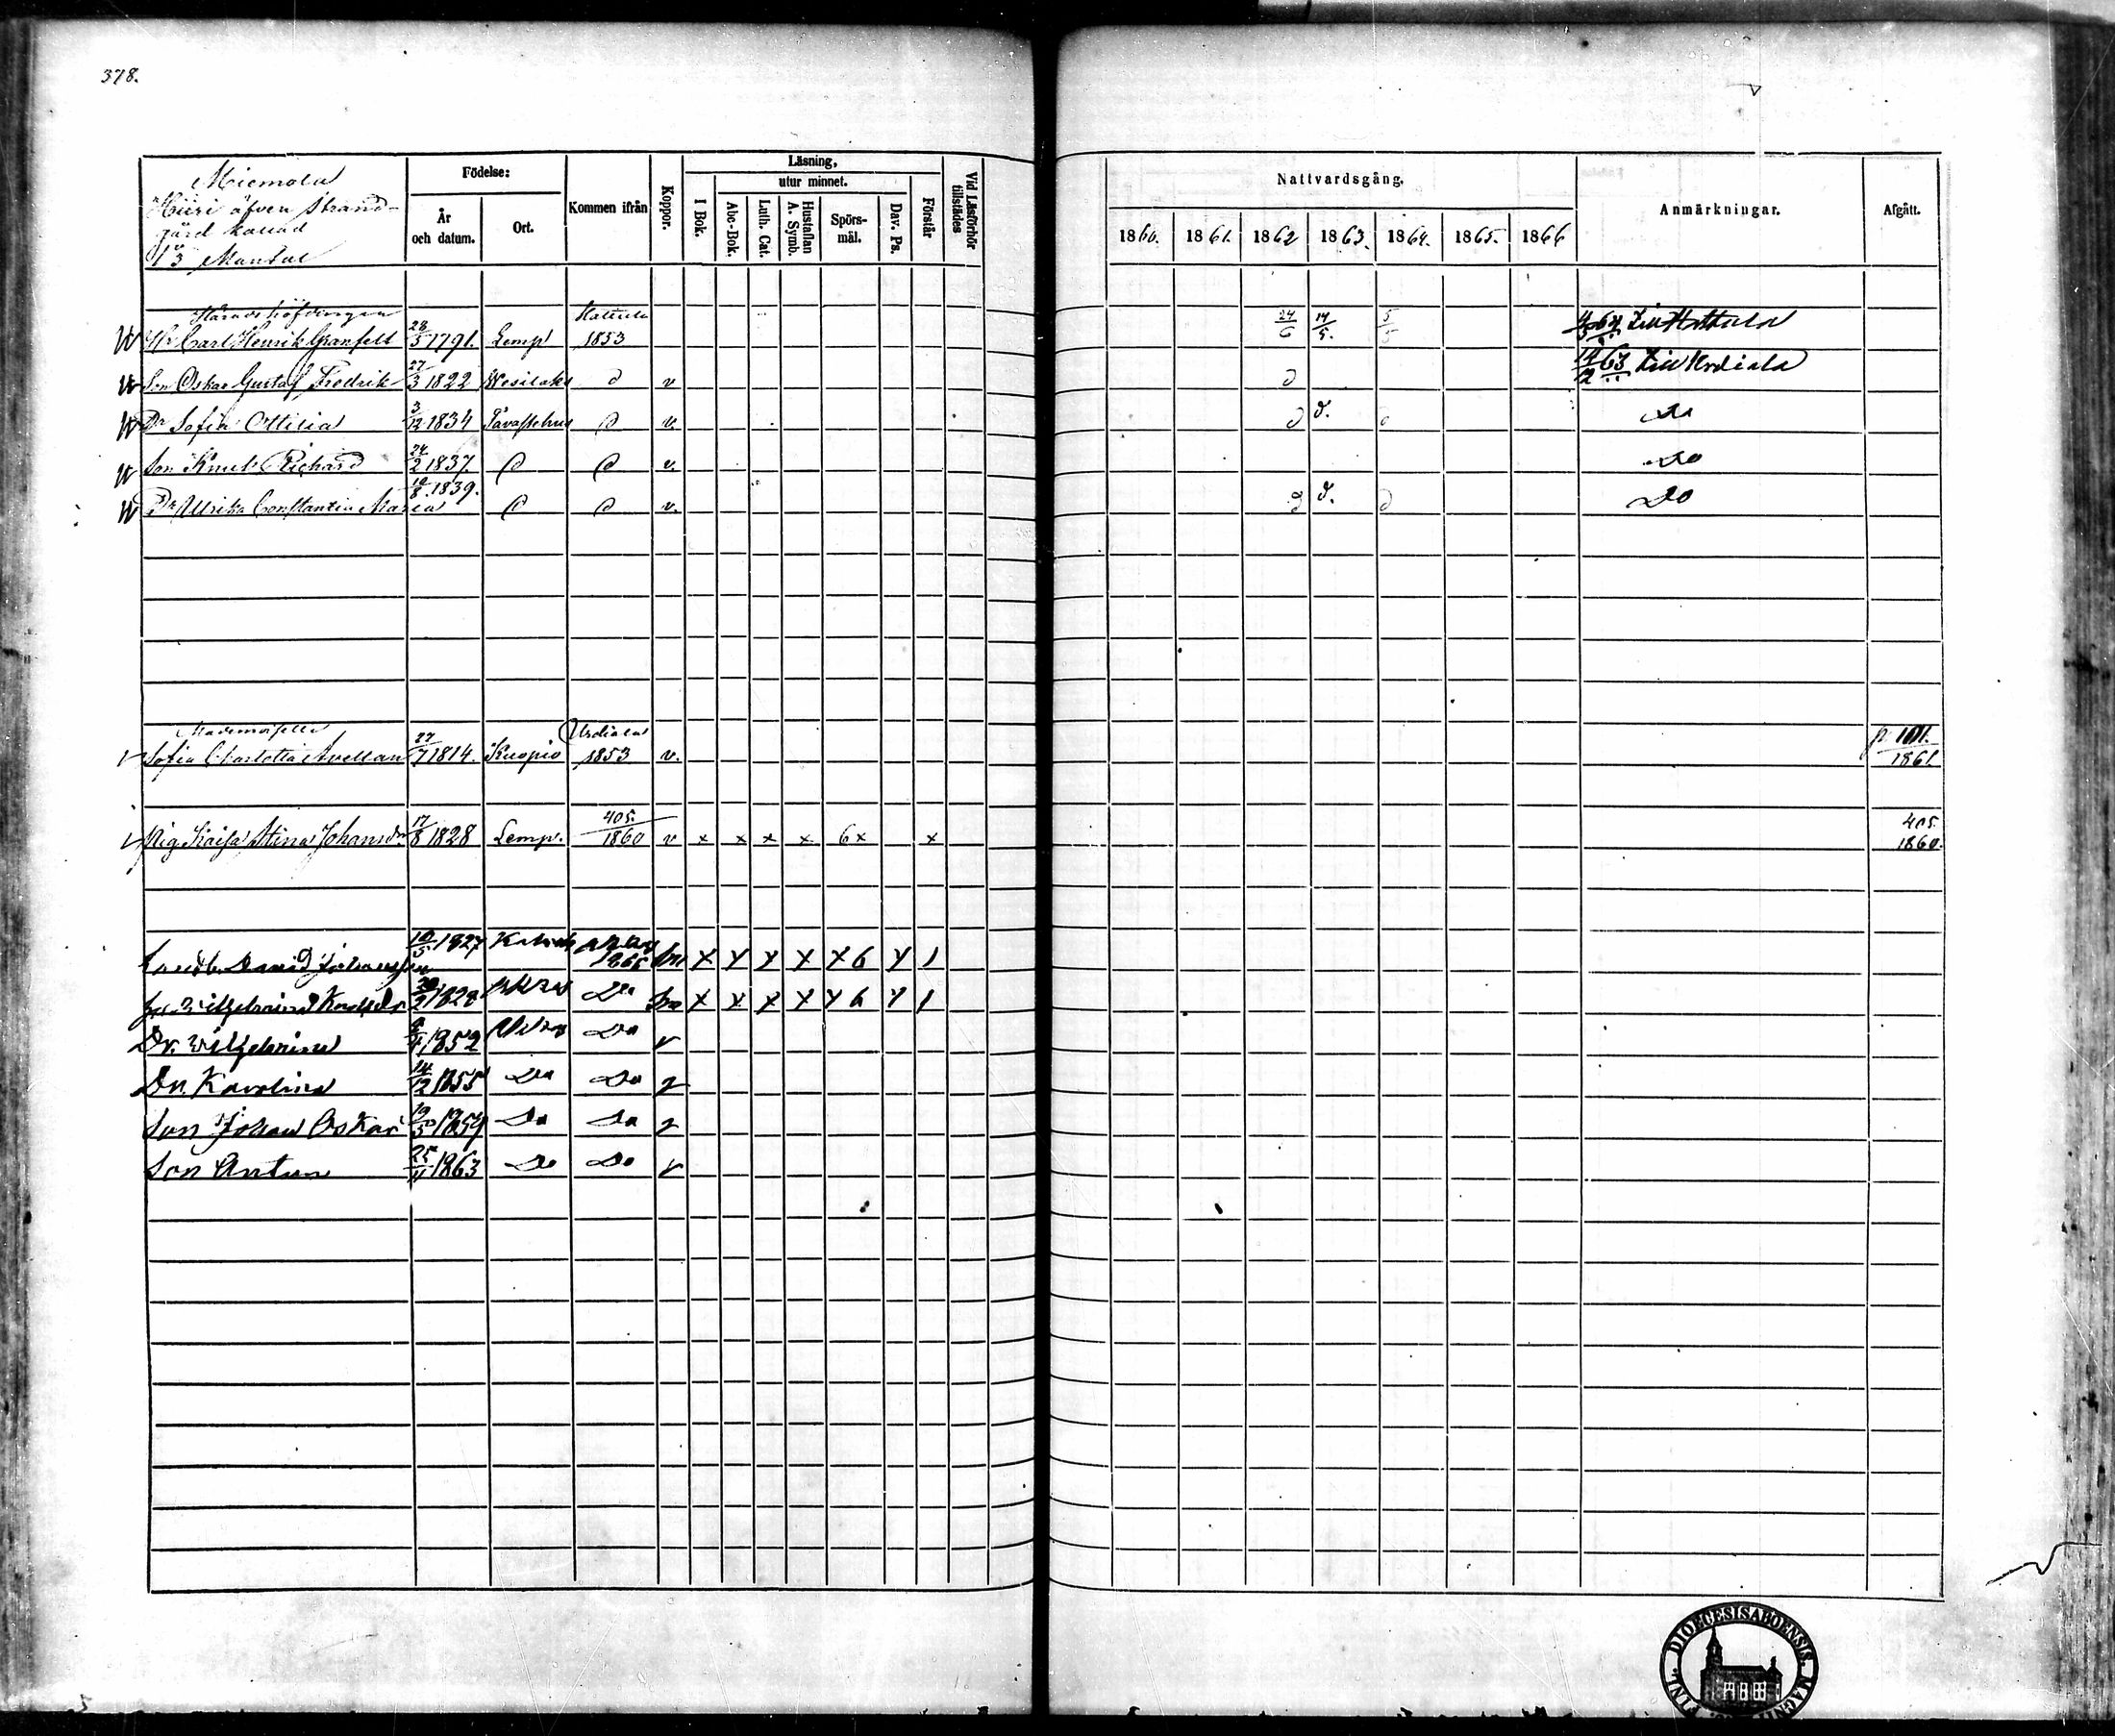 378.
Miemola
Hiisi äfven Strand-
gård kallad
1/3 Mantal
Födelse:
År och datum.
Ort.
Kommen ifrån
Koppor.
Läsning,
utur minnet.
I Bok.
Abc-Bok.
Luth. Cat.
Hustaflan A. Symb.
Spörs-mål.
Dav. Ps.
Förstår
Vid Läsförhör tillstädes
Nattvardsgång.
1860. 1861. 1862 1863. 1864. 1865. 1866
Anmärkningar.
Afgått.
Häradshöfdingen Hattula
Hr Carl Henrik Granfelt 28/5 1791. Lemp 1853 24/6 14/5. 5/5 64 till Hattula
Son Oskar Gustaf Fredrik 27/3 1822 Wesilaks d v d 14/12 63 till Urdiala
Dr Sofia Ottilia 3/12 1834 Tavastehus d v. d d. d Do
Son Knut Richard 24/2 1837. d d v. Do
Dr Ulrika Constantia Maria 10/8 1839. d d v. d d. d Do
Mademoiselle Urdiala
Sofia Charlotta Avellan 27/7 1814. Kuopio 1853 v. p. 101. 1861.
Pig. Kaisa Stina Johansdr. 17/8 1828 Lemp. 405. 1860 v x x x x 6x x 405. 1860.
David Johansson 10/5 1827 x x x x x 6 x 1
Wilhelmina 1828 Do x x x x x 6 x 1
Dr. Wilhelmina 1852 Do v
Dr. Karolina 14/12 1855 Do Do v
Son Johan Oskar 19/5 1859 Do Do v
Son Anton 25/11 1863 Do Do v
FINL. DIOECESIS ABOENSIS. MAGNI